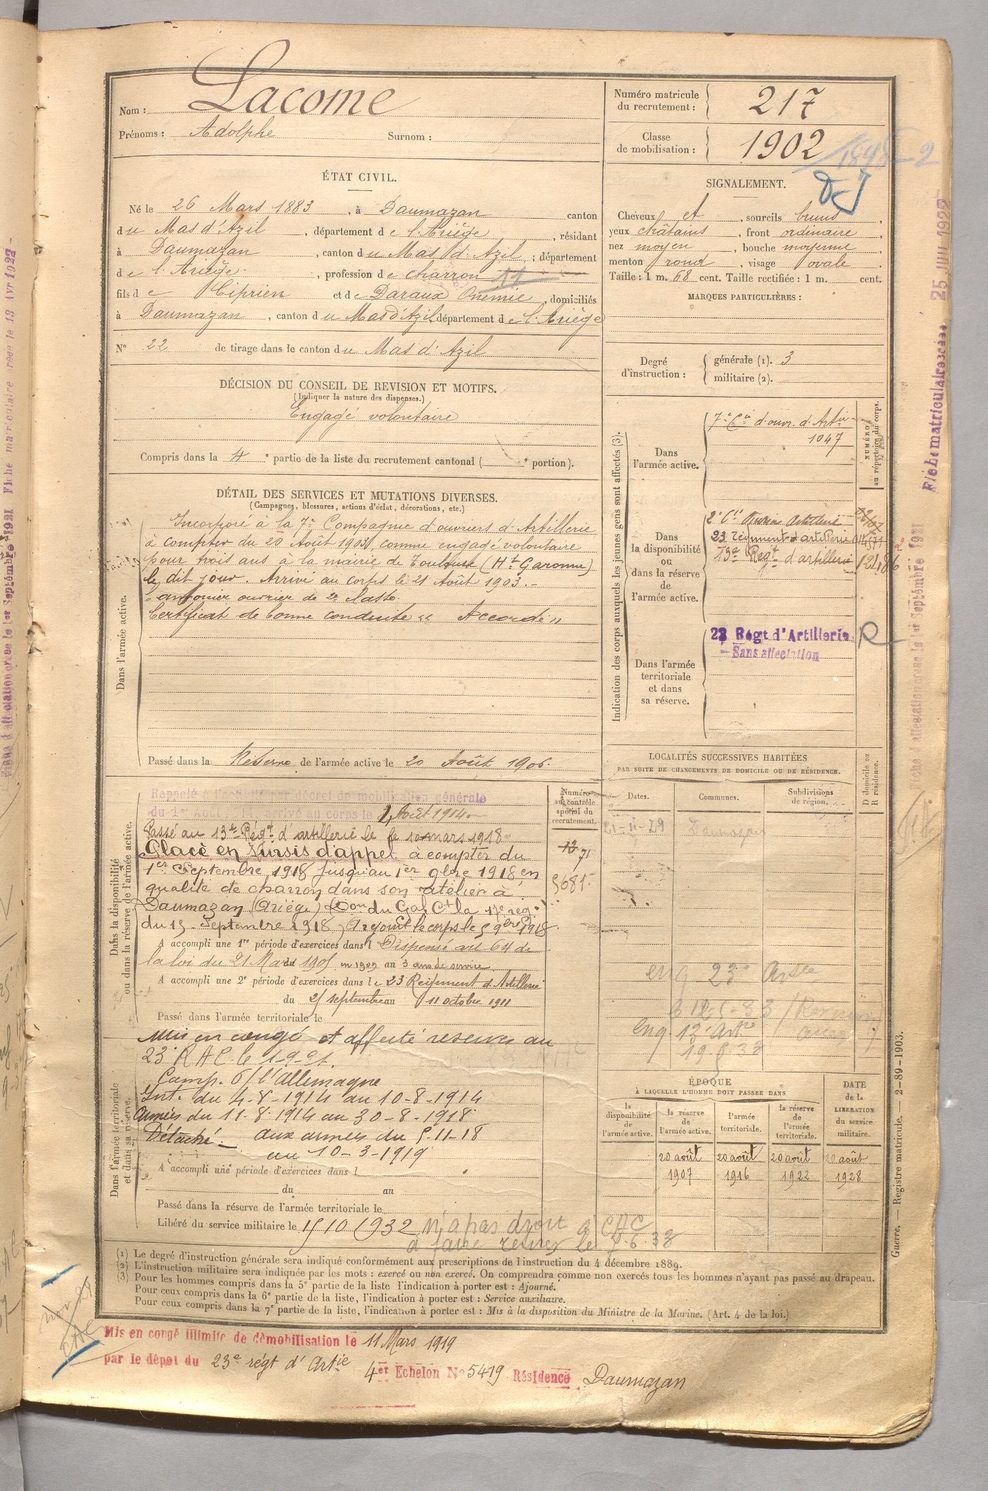 Nom : Lacome
Prénoms : Adolphe Surnom :
Numéro matricule du recrutement : 217
Classe de mobilisation : 1902
ÉTAT CIVIL.
Né le 26 Mars 1883, à Daumazan canton
du Mas d'Azil, département de l'Ariège, résidant
à Daumazan, canton du Mas d'Azil, département
de l'Ariège, profession de charron
fils de Ciprien et de Daraux, domiciliés
à Daumazan, canton du Mas d'Azil, département de l'Ariège
N° 22 de tirage dans le canton du Mas d'Azil
SIGNALEMENT.
Cheveux et, sourcils bruns,
yeux châtains, front ordinaire
nez moyen, bouche moyenne
menton rond, visage ovale
Taille : 1 m. 68 cent. Taille rectifiée : 1 m. cent.
MARQUES PARTICULIÈRES :
Degré d'instruction : générale (1). 3
militaire (2).
DÉCISION DU CONSEIL DE REVISION ET MOTIFS.
(Indiquer la nature des dispenses.)
Engagé volontaire
Compris dans la 4e partie de la liste du recrutement cantonal ( portion).
DÉTAIL DES SERVICES ET MUTATIONS DIVERSES.
(Campagnes, blessures, actions d'éclat, décorations, etc.)
Dans l'armée active.
Incorporé à la 7e Compagnie d'ouvriers d'Artillerie
à compter du 20 Août 1903, comme engagé volontaire
pour trois ans à la mairie de Toulouse (Hte Garonne)
le dit jour. Arrivé au corps le 21 Août 1903.
Canonnier ouvrier de 2e classe
Certificat de bonne conduite « Accordé »
Passé dans la Réserve de l'armée active le 20 Août 1906.
Indication des corps auxquels les jeunes gens sont affectés (3).
NUMÉROS au répertoire du corps.
Dans l'armée active.
7e Cie d'ouvr. d'Artie
1047
Dans la disponibilité ou dans la réserve de l'armée active.
2e Cie Ouvriers Artillerie
23 Régiment d'artillerie
13e Regt d'artillerie
Dans l'armée territoriale et dans sa réserve.
23 Régt d'Artillerie
Sans affectation
R
LOCALITÉS SUCCESSIVES HABITÉES
PAR SUITE DE CHANGEMENTS DE DOMICILE OU DE RÉSIDENCE.
Dates. Communes. Subdivisions de région. D domicile ou R résidence.
Daumazan
Dans la disponibilité ou dans la réserve de l'armée active.
Numéro au contrôle spécial du recrutement.
Rappelé à l'activité par décret de mobilisation générale
du 1er Août 1914. Arrivé au corps le 4 Août 1914
Passé au 13e Régt d'artillerie le 10 mars 1918
Placé en Sursis d'appel à compter du
1er Septembre 1918 jusqu'au 1er 9bre 1918 en
qualité de charron dans son atelier à
Daumazan (Ariège)
du 15 Septembre 1918, Rejoint le corps le 5 9bre 1918
A accompli une 1re période d'exercices dans l Dispensé art 64 de
la loi du 21 Mars 1905 3 ans de service
A accompli une 2e période d'exercices dans le 23 Régiment d'Artillerie
du 25 septembre au 11 octobre 1911
Passé dans l'armée territoriale le
Dans l'armée territoriale et dans sa réserve.
Mis en congé et affecté réserves au
23e RAC le
Camp. c/ l'Allemagne
Int. du 4-8-1914 au 10-8-1914
Armées du 11-8-1914 au 30-8-1918
Détaché. aux armées du 5-11-18
au 10-3-1919
A accompli une période d'exercices dans l
du au
Passé dans la réserve de l'armée territoriale le
Libéré du service militaire le 15 10 1932 n'a pas droit à CAC
ÉPOQUE
À LAQUELLE L'HOMME DOIT PASSER DANS
DATE DE LA LIBÉRATION du service militaire.
la disponibilité de l'armée active. la réserve de l'armée active. l'armée territoriale. la réserve de l'armée territoriale.
20 août 1907 20 août 1916 20 août 1922 20 août 1928
(1) Le degré d'instruction générale sera indiqué conformément aux prescriptions de l'instruction du 4 décembre 1889.
(2) L'instruction militaire sera indiquée par les mots : exercé ou non exercé. On comprendra comme non exercés tous les hommes n'ayant pas passé au drapeau.
(3) Pour les hommes compris dans la 5e partie de la liste, l'indication à porter est : Ajourné.
Pour ceux compris dans la 6e partie de la liste, l'indication à porter est : Service auxiliaire.
Pour ceux compris dans la 7e partie de la liste, l'indication à porter est : Mis à la disposition du Ministre de la Marine. (Art. 4 de la loi.)
Guerre. — Registre matricule. — 2-89-1903.
Mis en congé illimité de démobilisation le 11 Mars 1919
par le dépôt du 23e régt d'Artie 4er Echelon N° 5419 Résidence Daumazan